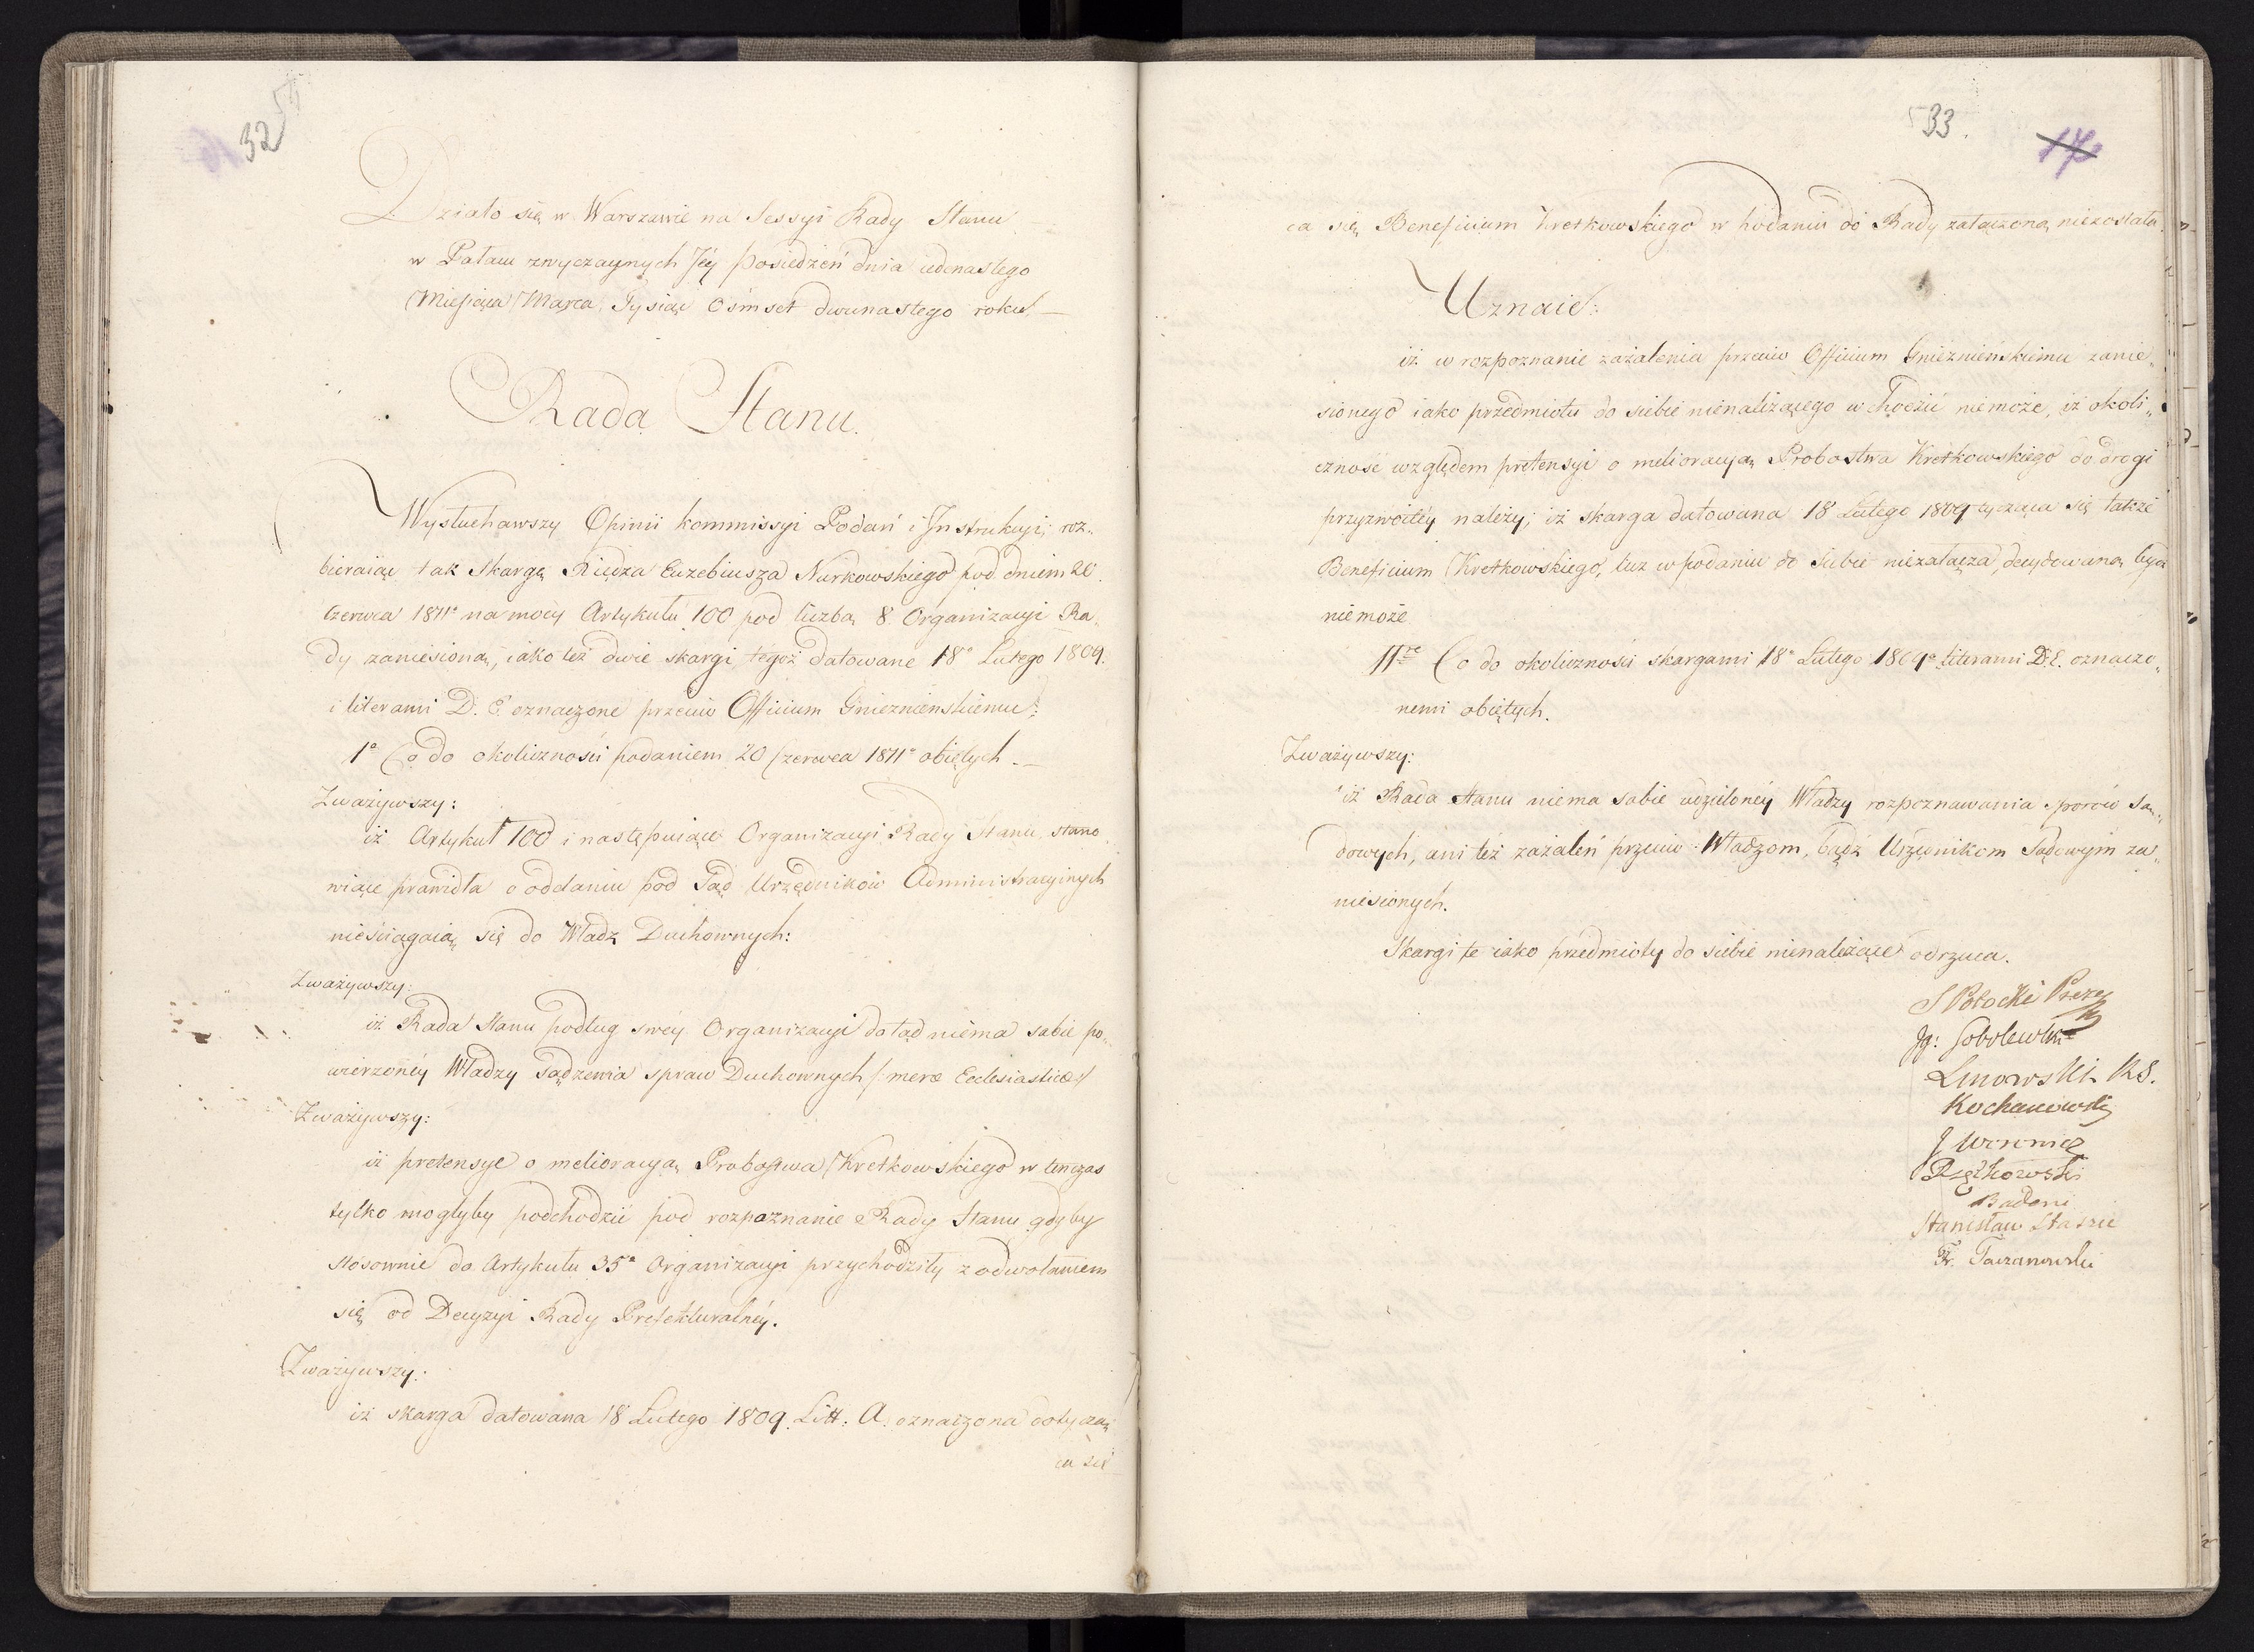 32
Działo się w Warszawie na Sessyi Rady Stanu
w Pałacu zwyczaynych Jéy posiedzeń dnia iedenastego
Miesiąca Marca Tysiąc Ośmset dwunastego roku. —
Rada Stanu.
Wysłuchawszy Opinii kommissyi Podań i Instrukcyi, roz„
bieraiąc tak Skargę Xiędza Euzebiusza Nurkowskiego pod dniem 20.
Czerwca 1811o na mocy Artykułu 100 pod liczbą 8. Organizacyi Ra„
dy zaniesioną, iako też dwie skargi tegoż datowane 18o Lutego 1809.
i literami D. E. oznaczone przeciw Officium Gnieznienskiemu:
1o Co do okoliczności podaniem 20 Czerwca 1811o obiętych. —
Zważywszy:
iż Artykuł 100 i następuiące Organizacyi Rady Stanu, stano„
wiące prawidła o oddaniu pod Sąd Urzędników Administracyinych
nieściągaią się do Władz Duchownych:
Zważywszy:
iż Rada Stanu podług swéy Organizacyi dotąd niema sobie po„
wierzonéy Władzy Sądzenia spraw Duchownych /: meræ Ecclesiasticæ :/
Zważywszy:
iż pretensye o melioracyą Probostwa Kretkowskiego w tenczas
tylko mogłyby podchodzić pod rozpoznanie Rady Stanu gdyby
stosownie do Artykułu 35o Organizacyi przychodziły z odwołaniem
się od Decyzyi Rady Prefekturalnéy.
Zważywszy:
iż skarga datowana 18 Lutego 1809. Litt: A. oznaczona dotyczą⸗
ca się
33.
17
ca się Beneficium Kretkowskiego w podaniu do Rady załączoną niezostała.
Uznaie:
iż w rozpoznanie zażalenia przeciw Officium Gnieznieńskiemu zanie„
sionego iako przedmiotu do siebie nienależącego wchodzić niemoże, iż okoli„
czność względem pretensyi o melioracyą Probostwa Kretkowskiego do drogi
przyzwoitéy należy; iż skarga datowana 18 Lutego 1809 tycząca się także
Beneficium Kretkowskiego, lecz w podaniu do Siebie niezałącza, decydowaną bydź
niemoże
IIre Co do okoliczności skargami 18o Lutego 1809o literami D. E. oznaczo„
nemi obiętych.
Zważywszy:
iż Rada Stanu niema sobie udzielonéy Władzy rozpoznawania sporów Są„
dowych, ani też zażaleń przeciw Władzom, bądź Urzędnikom Sądowym za„
niesionych.
Skargi te iako przedmioty do siebie nienależące odrzuca.
S Potocki Prezes
Ig: Sobolewski
Linowski RS.
Kochanowski
J Woronicz
Badeni
Stanisław Staszic
Fr. Taczanowski